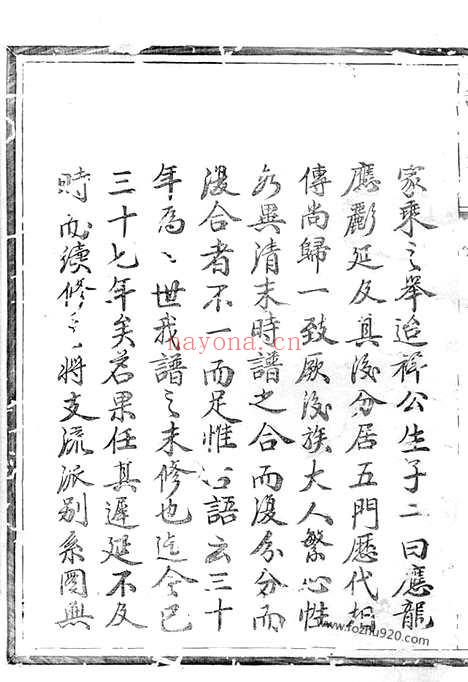 家乘之舉迨祥公生子二曰應龍
應彪延及其後分居五門歷代相
傳尚歸一致厥後族大人繁心性
各異清末時譜之合而復分分而
復合者不一而足惟古語云三十
年為一世我譜之未修也迄今已
三十七年矣若果任其遲延不及
時而續修之將支流派別系圖與
nayona.cn
www.fozhu920.com